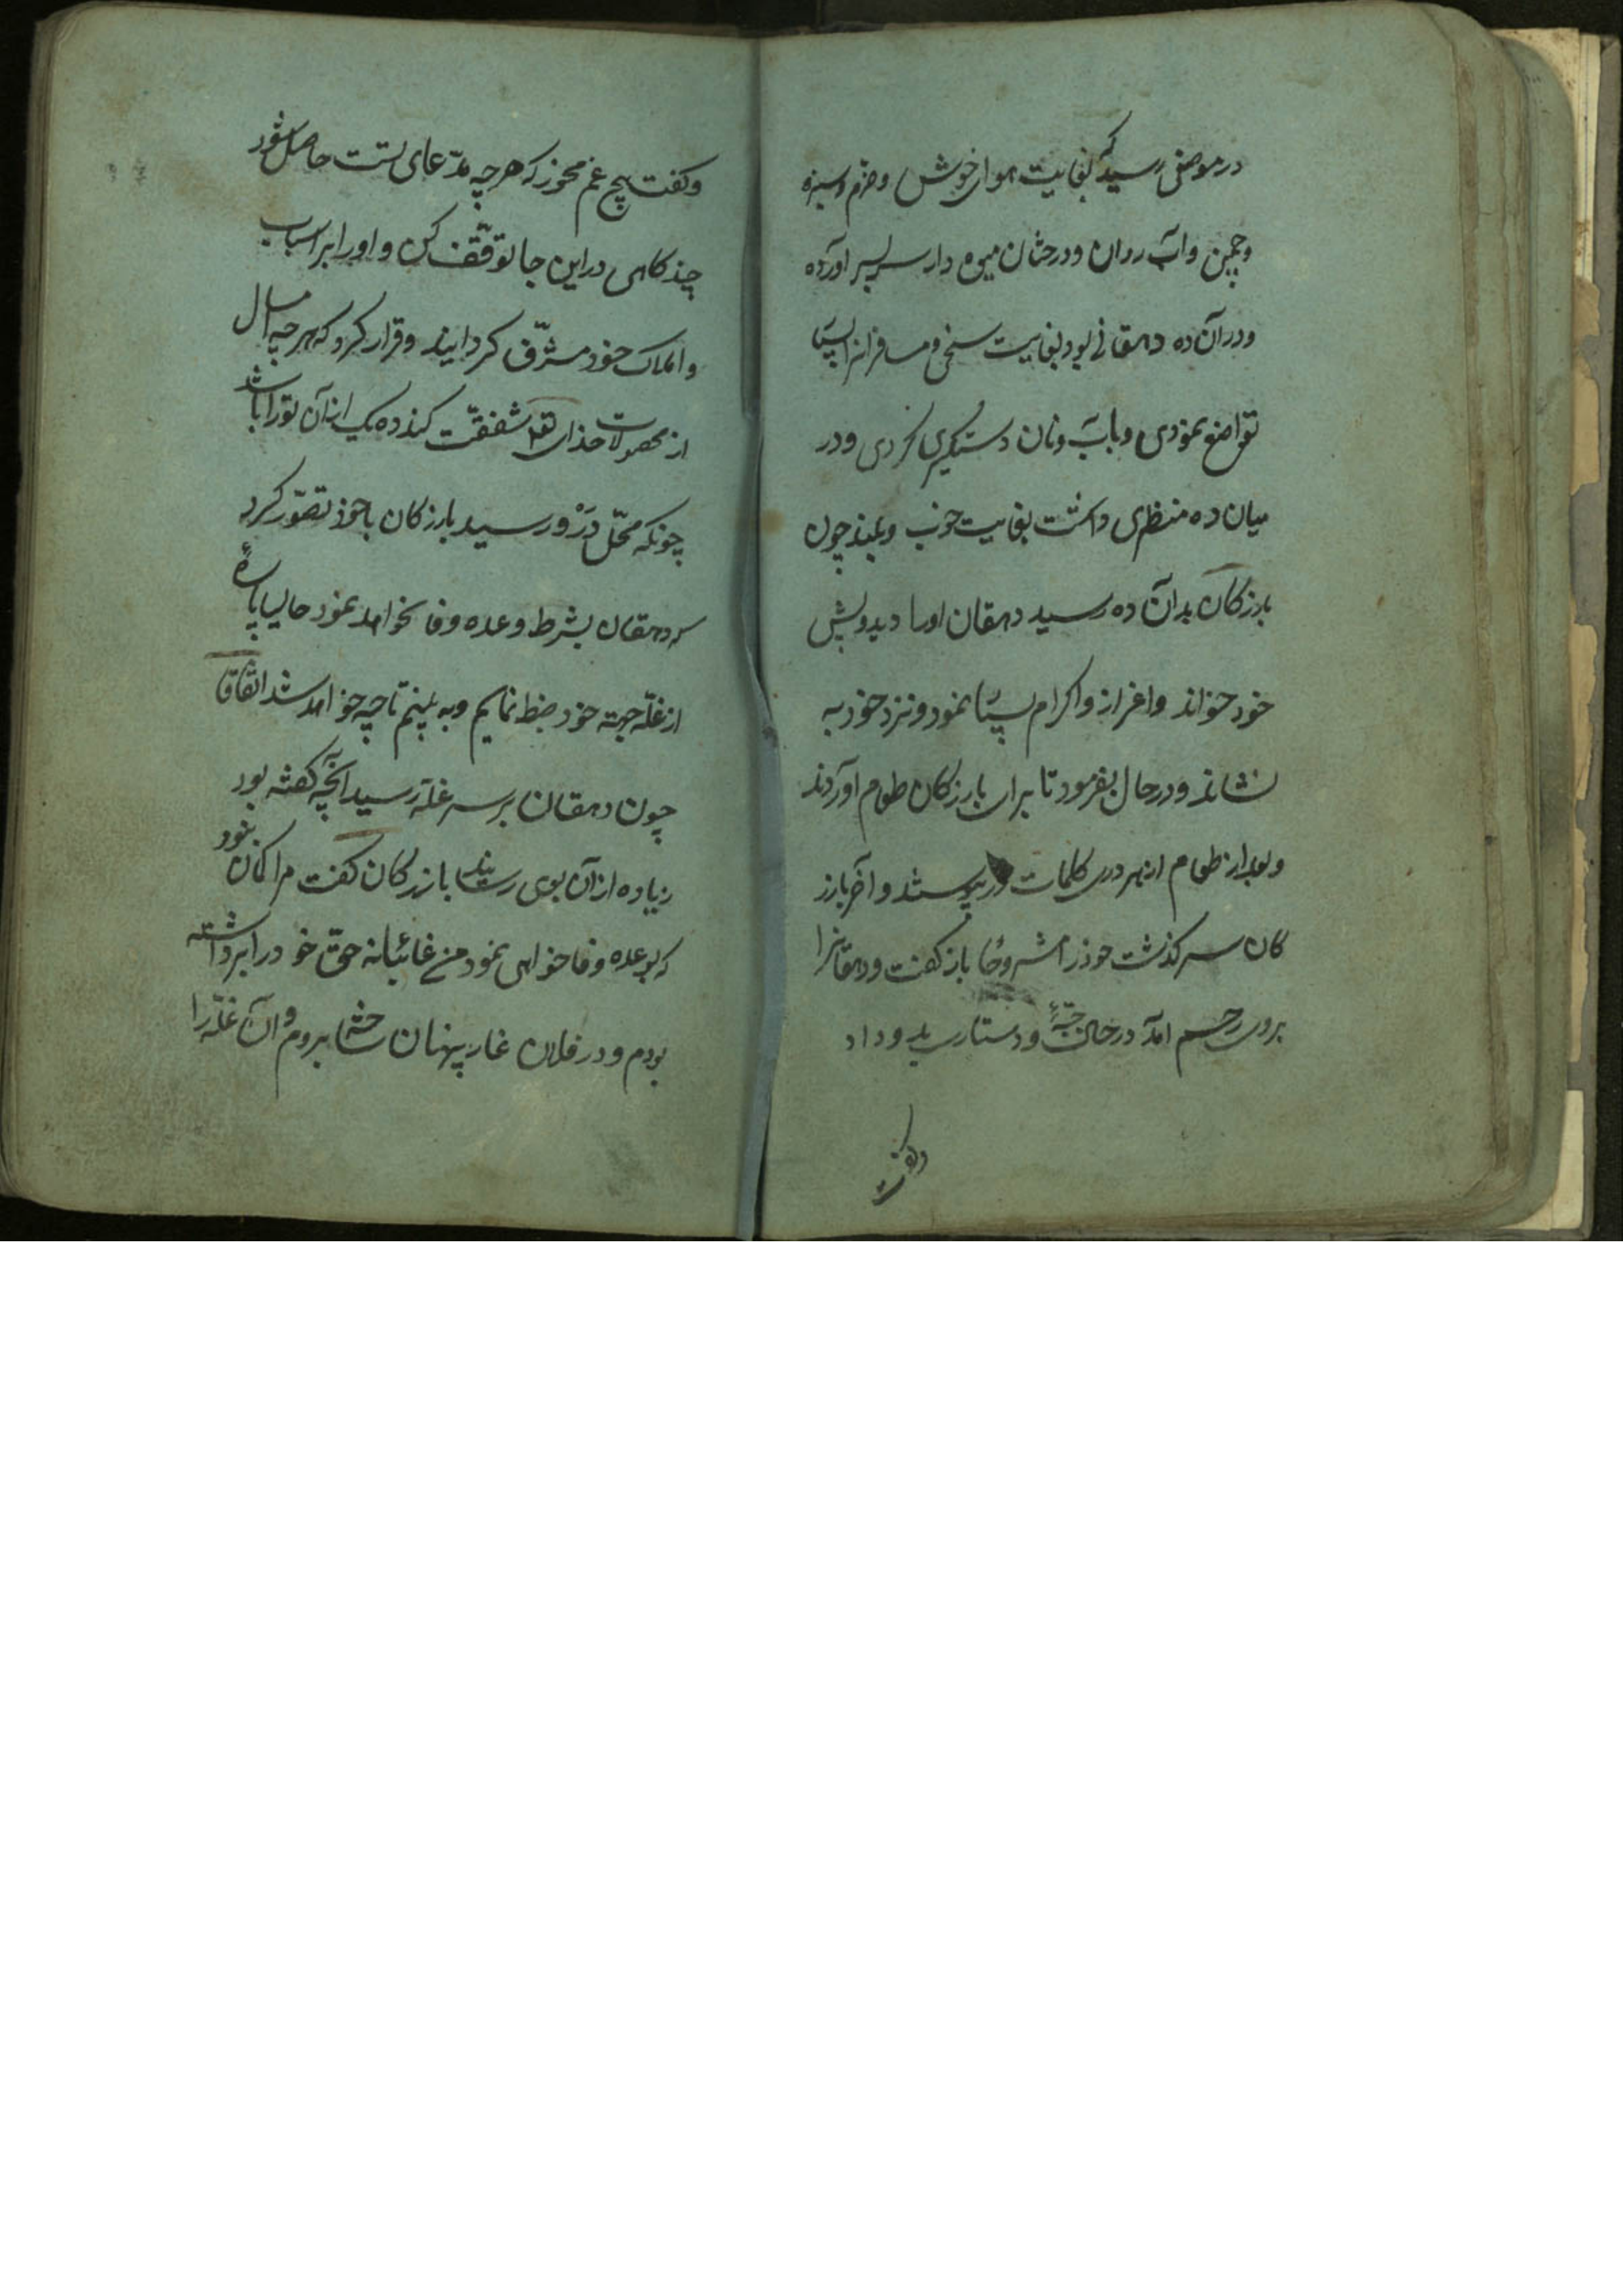 در موضعی رسید که بغایت هوای خوش و خرم و سبزه
و چمن و آب روان و درختان میوه دار سر بسر آورده
و در آن ده دهقانی بود بغایت سخی و مسافرانرا بسیا
تواضع نمودی و بآب و نان دستگیری کردی و در
میان ده منظری داشت بغایت خوب و بلند چون
بازرکان بدان ده رسید دهقان اورا دید و پیش
خود خواند و اعزاز و اکرام بسیا نمود و نزد خود به
نشاند و در حال بفرمود تا برای بازرکان طعام آوردند
و بعد از طعام از هر دری کلمات در پیوستند و آخر بازر
کان سرکذشت خود را مشروحا باز کفت و دهقانرا
بروی رحم آمد در حال جبّهٔ و دستاری بدو داد
وکفت
وکفت هیچ غم مخور که هر چه مدّعای تست حاصل شود
چند کاهی در این جا توقّف کن و اورا بر اسباب
و املاک خود مشرّف کردانید و قرار کرد که هر چه امسال
از محصولات خدای تعالی شفقّت کند ده یک از آن تورا باشد
چونکه محّل درو رسید بازرکان با خود تصوّر کرد
که دهقان بشرط وعده وفا نخواهد نمود حالیا پارهٔ
از غلّه جهته خود ضبط نمایم و به بینم تا چه خواهد شد اتّفاقا
چون دهقان بر سر غلّه رسید آنچه کفته بود
زیاده از آن بوی رسانید بازرکان کفت مرا کمان نبود
که بوعده وفا خواهی نمود من غائبانه حقّ خو درا برداشته
بودم و در فلان غار پنهان ساخته‌ام بروم و آن غلّه را